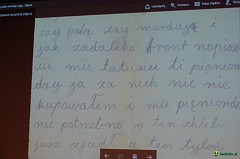 czy palą czy mordują i
jak zadaleko front napisz
cie mie tatusiu ti pienion
dzy ja za nich nic nie
kupowałem i mie pieniondze
nie potrzebno a ten chleb
jusz zjadł a ten tytoń